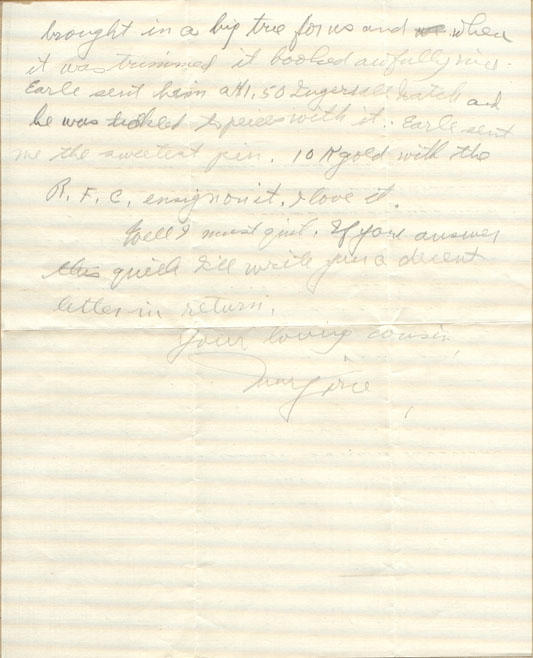 brought in a big tree for us and when
it was trimmed it looked awfully nice.
Earle sent him a $1.50 Ingersoll Watch and
he was tickled to pieces with it. Earle sent
me the sweetest pin. 10 K gold with the
R. F. C. ensign on it. I love it.
Well I must quit. If you answer
this quick I'll write you a decent
letter in return.
Your loving cousin,
Margirie